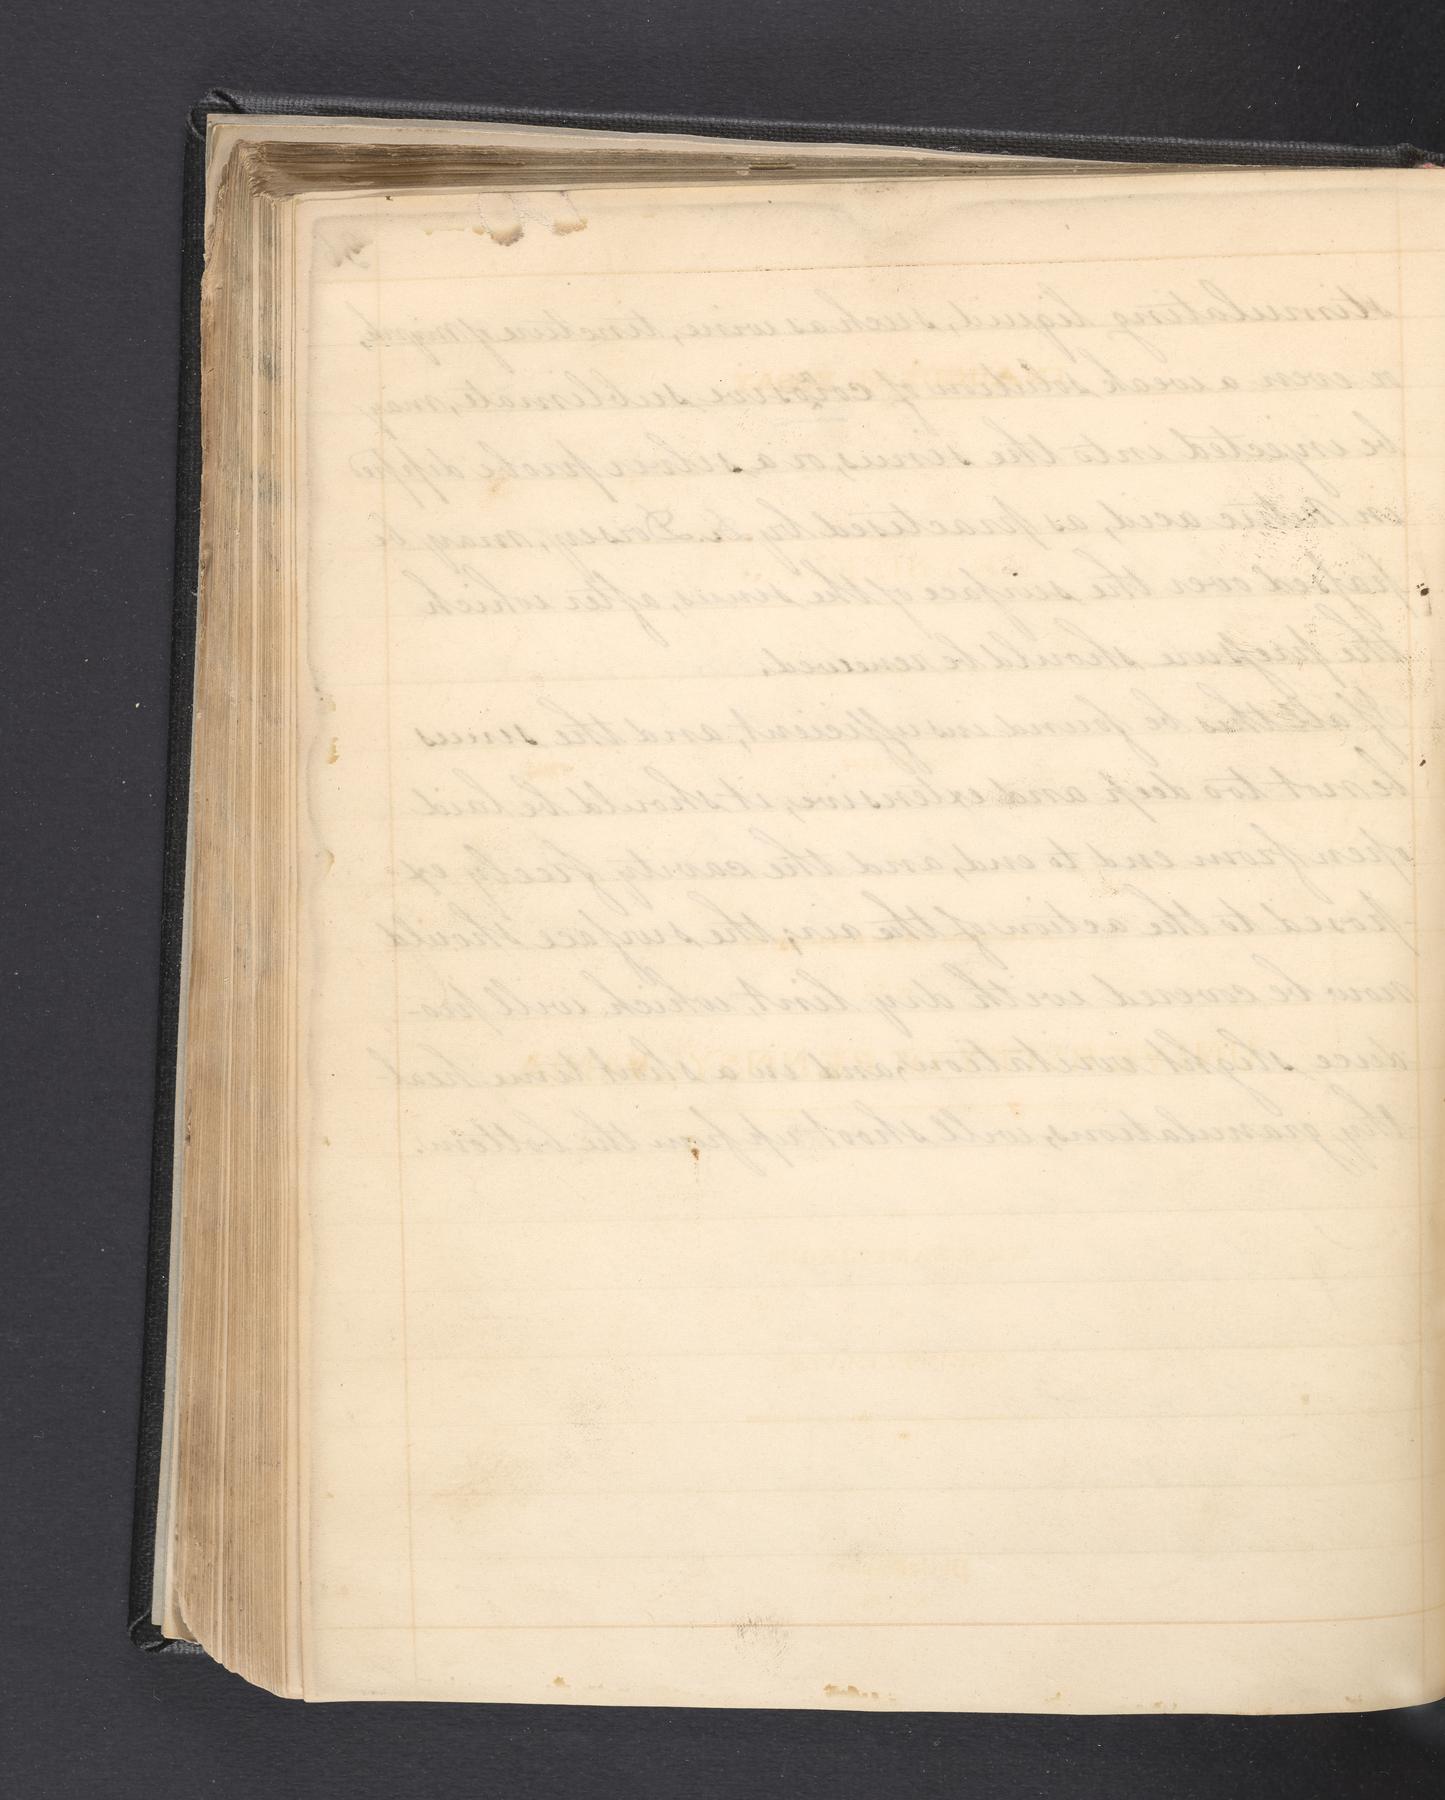 stimulating liquid, such as wine, tincture of myrrh,
or even a weak solution of corosive sublimate, may
be injected into the sinus, or a silver probe dipped
in nitric acid, as practised by Dr. Dorsey, may be
passed over the surface of the sinus, after which
the pressure should be renewed.
If all this be found insufficient, and the sinus
be not too deep and extensive, it should be laid
open from end to end, and the cavity freely ex
-posed to the action of the air; the surface should
now be covered with dry lint, which will pro-
duce slight irritation, and in a short time heal-
thy granulations, will shoot up from the bottom.